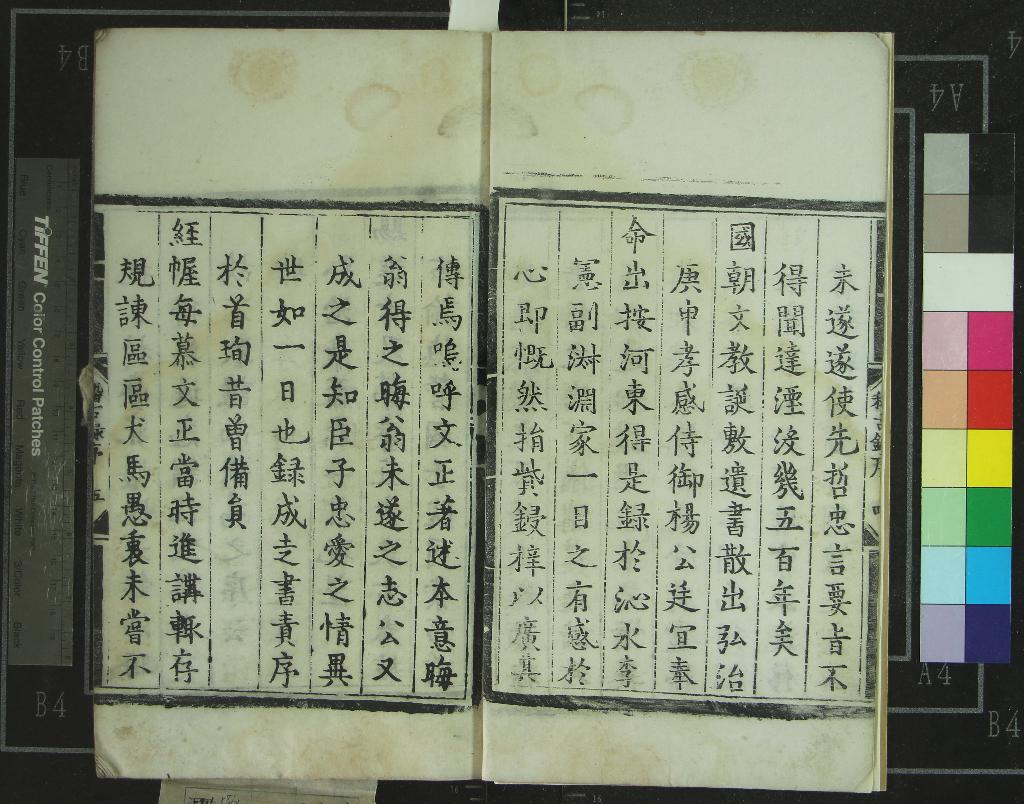 未遂遂使先哲忠言要旨不
得聞達湮沒幾五百年矣
國朝文教誕敷遺書散出弘治
庚申孝感侍御楊公廷宜奉
命出按河東得是録於沁水李
憲副淵家一目之有感於
心即慨然捐貲鋟梓以廣其
傳焉嗚呼文正著述本意晦
翁得之晦翁未遂之志公又
成之是知臣子忠愛之情異
世如一日也録成走書責序
於首珣昔曾備員
經幄每慕文正當時進講輒存
規諫區區犬馬愚衷未嘗不
TIFFEN Color Control Patches
Blue
Cyan
Green
Yellow
Red
Magenta
White
3/Color
Black
B4
A4
A4
B4
B4